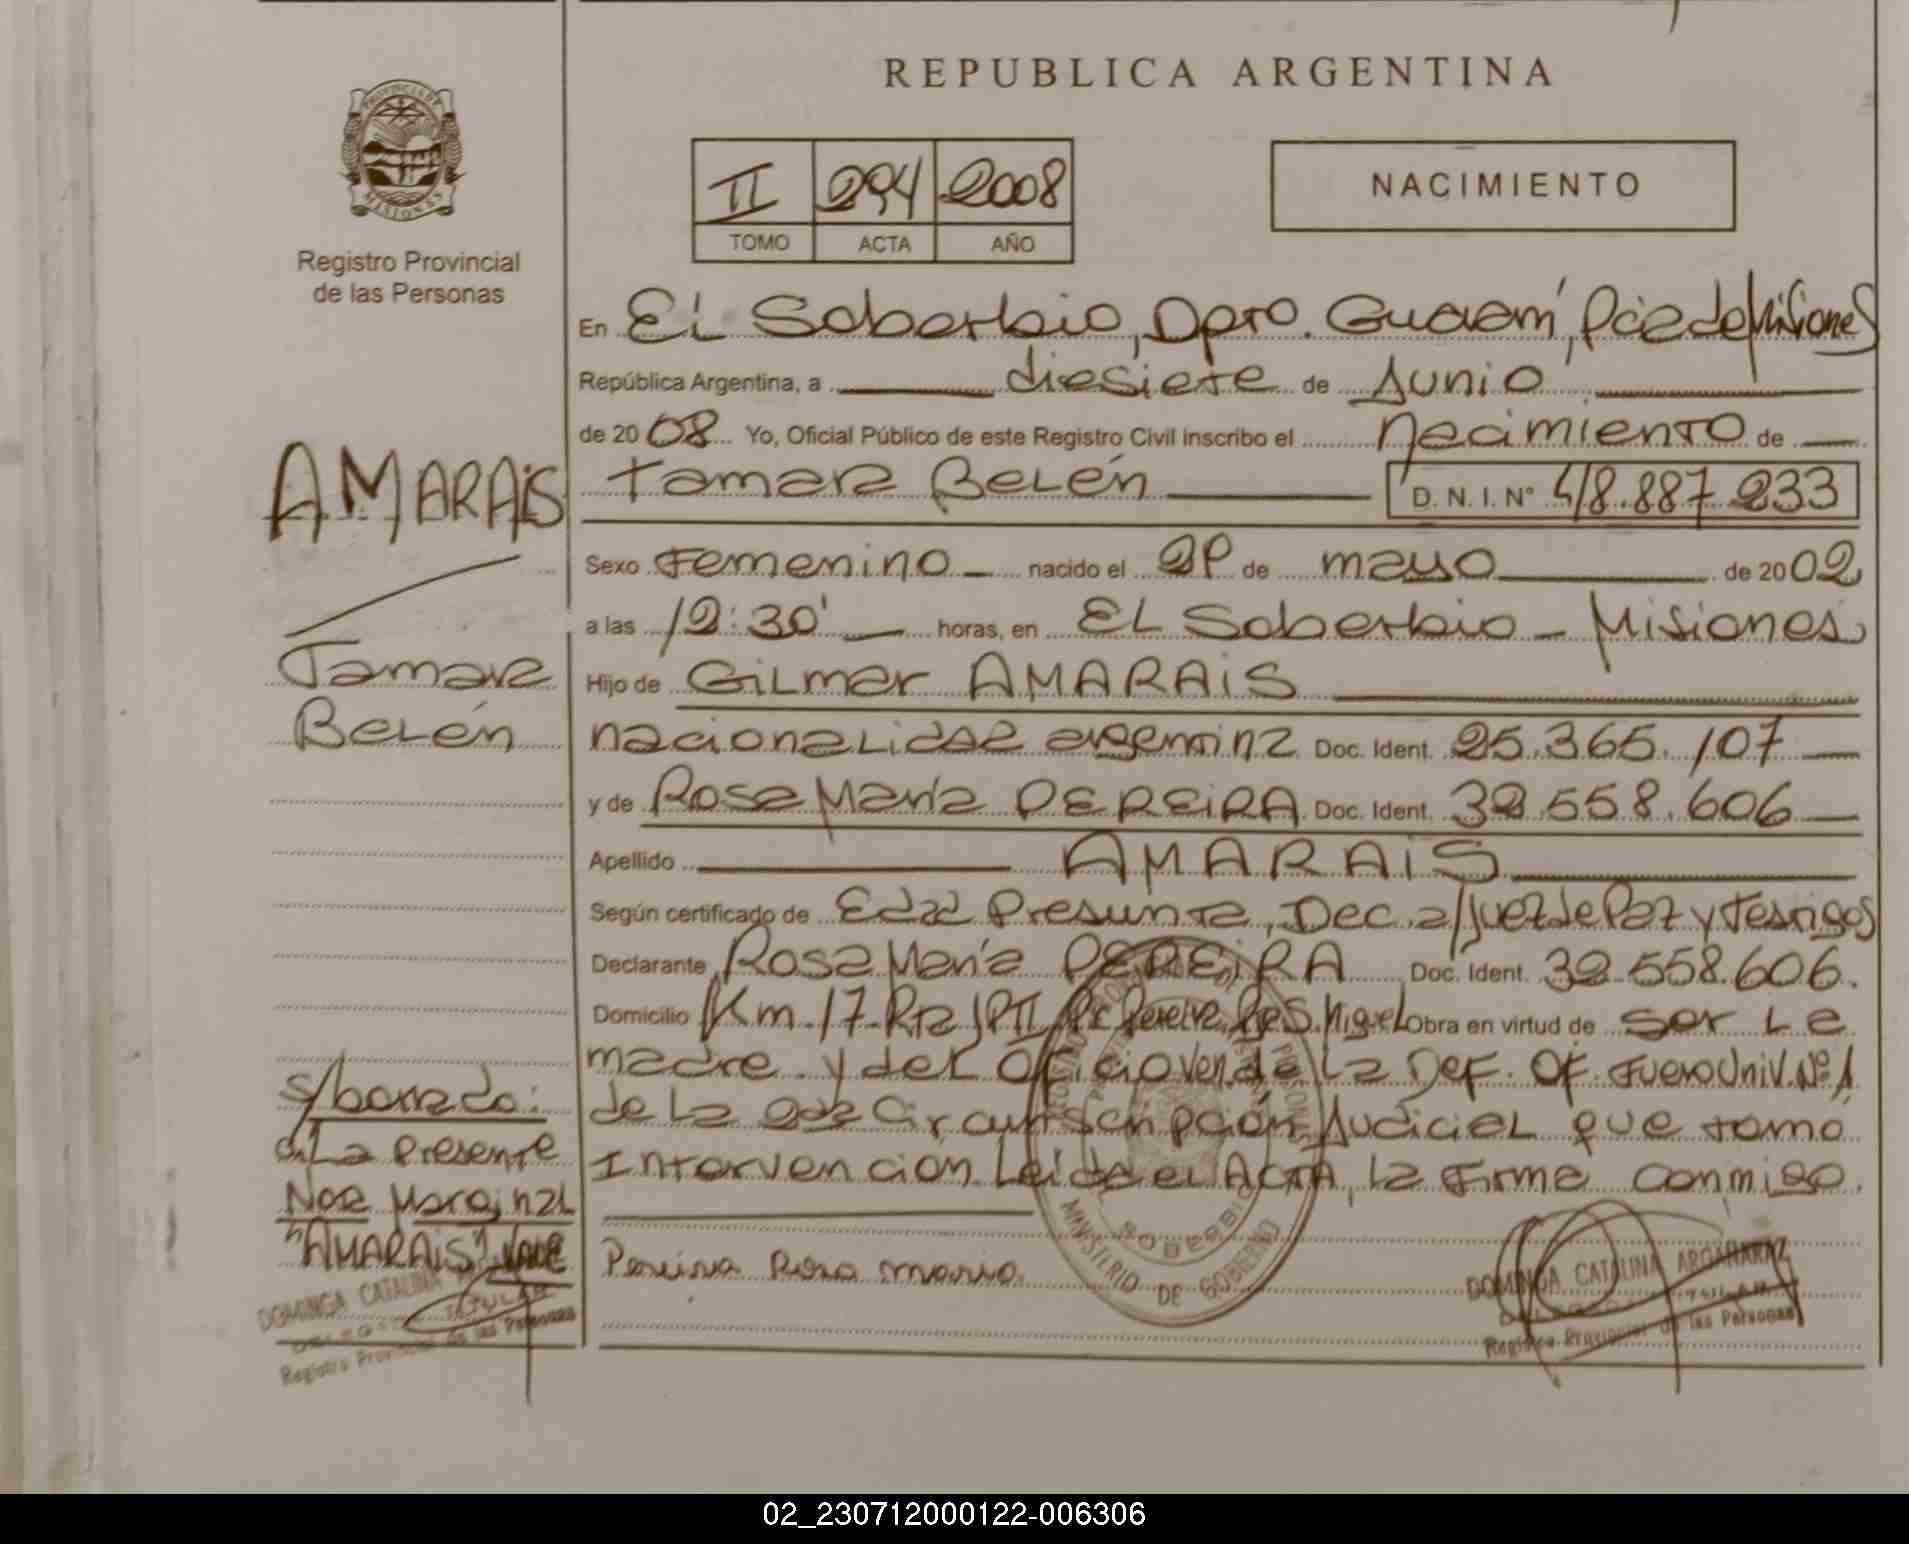 REPUBLICA ARGENTINA
PROVINCIA DE
MISIONES
Registro Provincial
de las Personas
II 294 2008
TOMO ACTA AÑO
NACIMIENTO
En El Soberbio, Dpto. Guaraní, Pcia de Misiones
República Argentina, a diesiete de Junio
de 2008 Yo, Oficial Público de este Registro Civil inscribo el nacimiento de
Tamara Belén D. N. I. Nº 48.887.233
Sexo Femenino nacido el de mayo de 2002
a las 12:30' horas, en El Soberbio - Misiones
Hijo de Gilmar AMARAiS
nacionalidad argentina Doc. Ident. 25.365.107
y de Rosa María PEREiRA Doc. Ident. 32.558.606
Apellido AMARAiS
Según certificado de Edad Presunta, Dec. a/Juez de Paz y Testigos
Declarante Rosa María PEREiRA Doc. Ident. 32.558.606.
Domicilio Km. 17 Rta Pereira S. Miguel Obra en virtud de ser la
madre y del Oficio de la Def. Of. Fuero Univ. Nº 1
de la 2da Circunscripción Judicial que tomó
Intervención Leida el ACTA, la firma conmigo.
Pereira Rosa maria
AMARAiS
Tamara
Belén
s/borrado:
La presente
Nota Marginal
"AMARAiS" VALE
DOMINGA CATALINA
TITULAR
Registro Provincial de las Personas
MINISTERIO DE GOBIERNO
SOBERBIO
DOMINGA CATALINA ARGAÑARAZ
Registro Provincial de las Personas
02_230712000122-006306